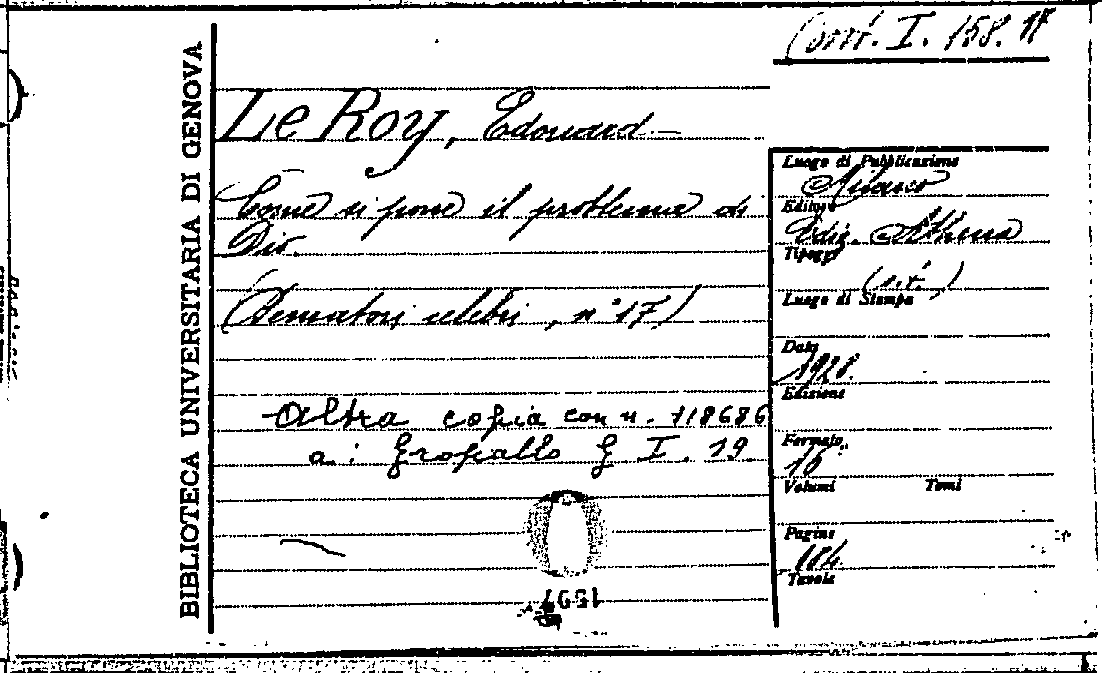 BIBLIOTECA UNIVERSITARIA DI GENOVA
I. 158. 17
Le Roy, Edouard
Come si pone il problema di
Dio.
(Pensatori celebri, n° 17)
Altra copia con n. 118686
a: Gropallo G I. 19
Luogo di Pubblicazione
Milano
Editore
Ediz. Athena
Tipogr.
(s.t.)
Luogo di Stampa
Data
1928.
Edizione
Formato
16°
Volumi Tomi
Pagine
184.
Tavole